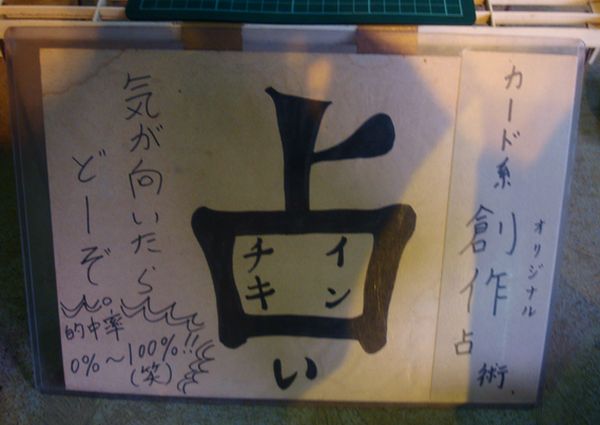 カード系
創作占術
オリジナル
占い
イン
チキ
気が向いたら
どーぞ
的中率
0%～100%!!
(笑)